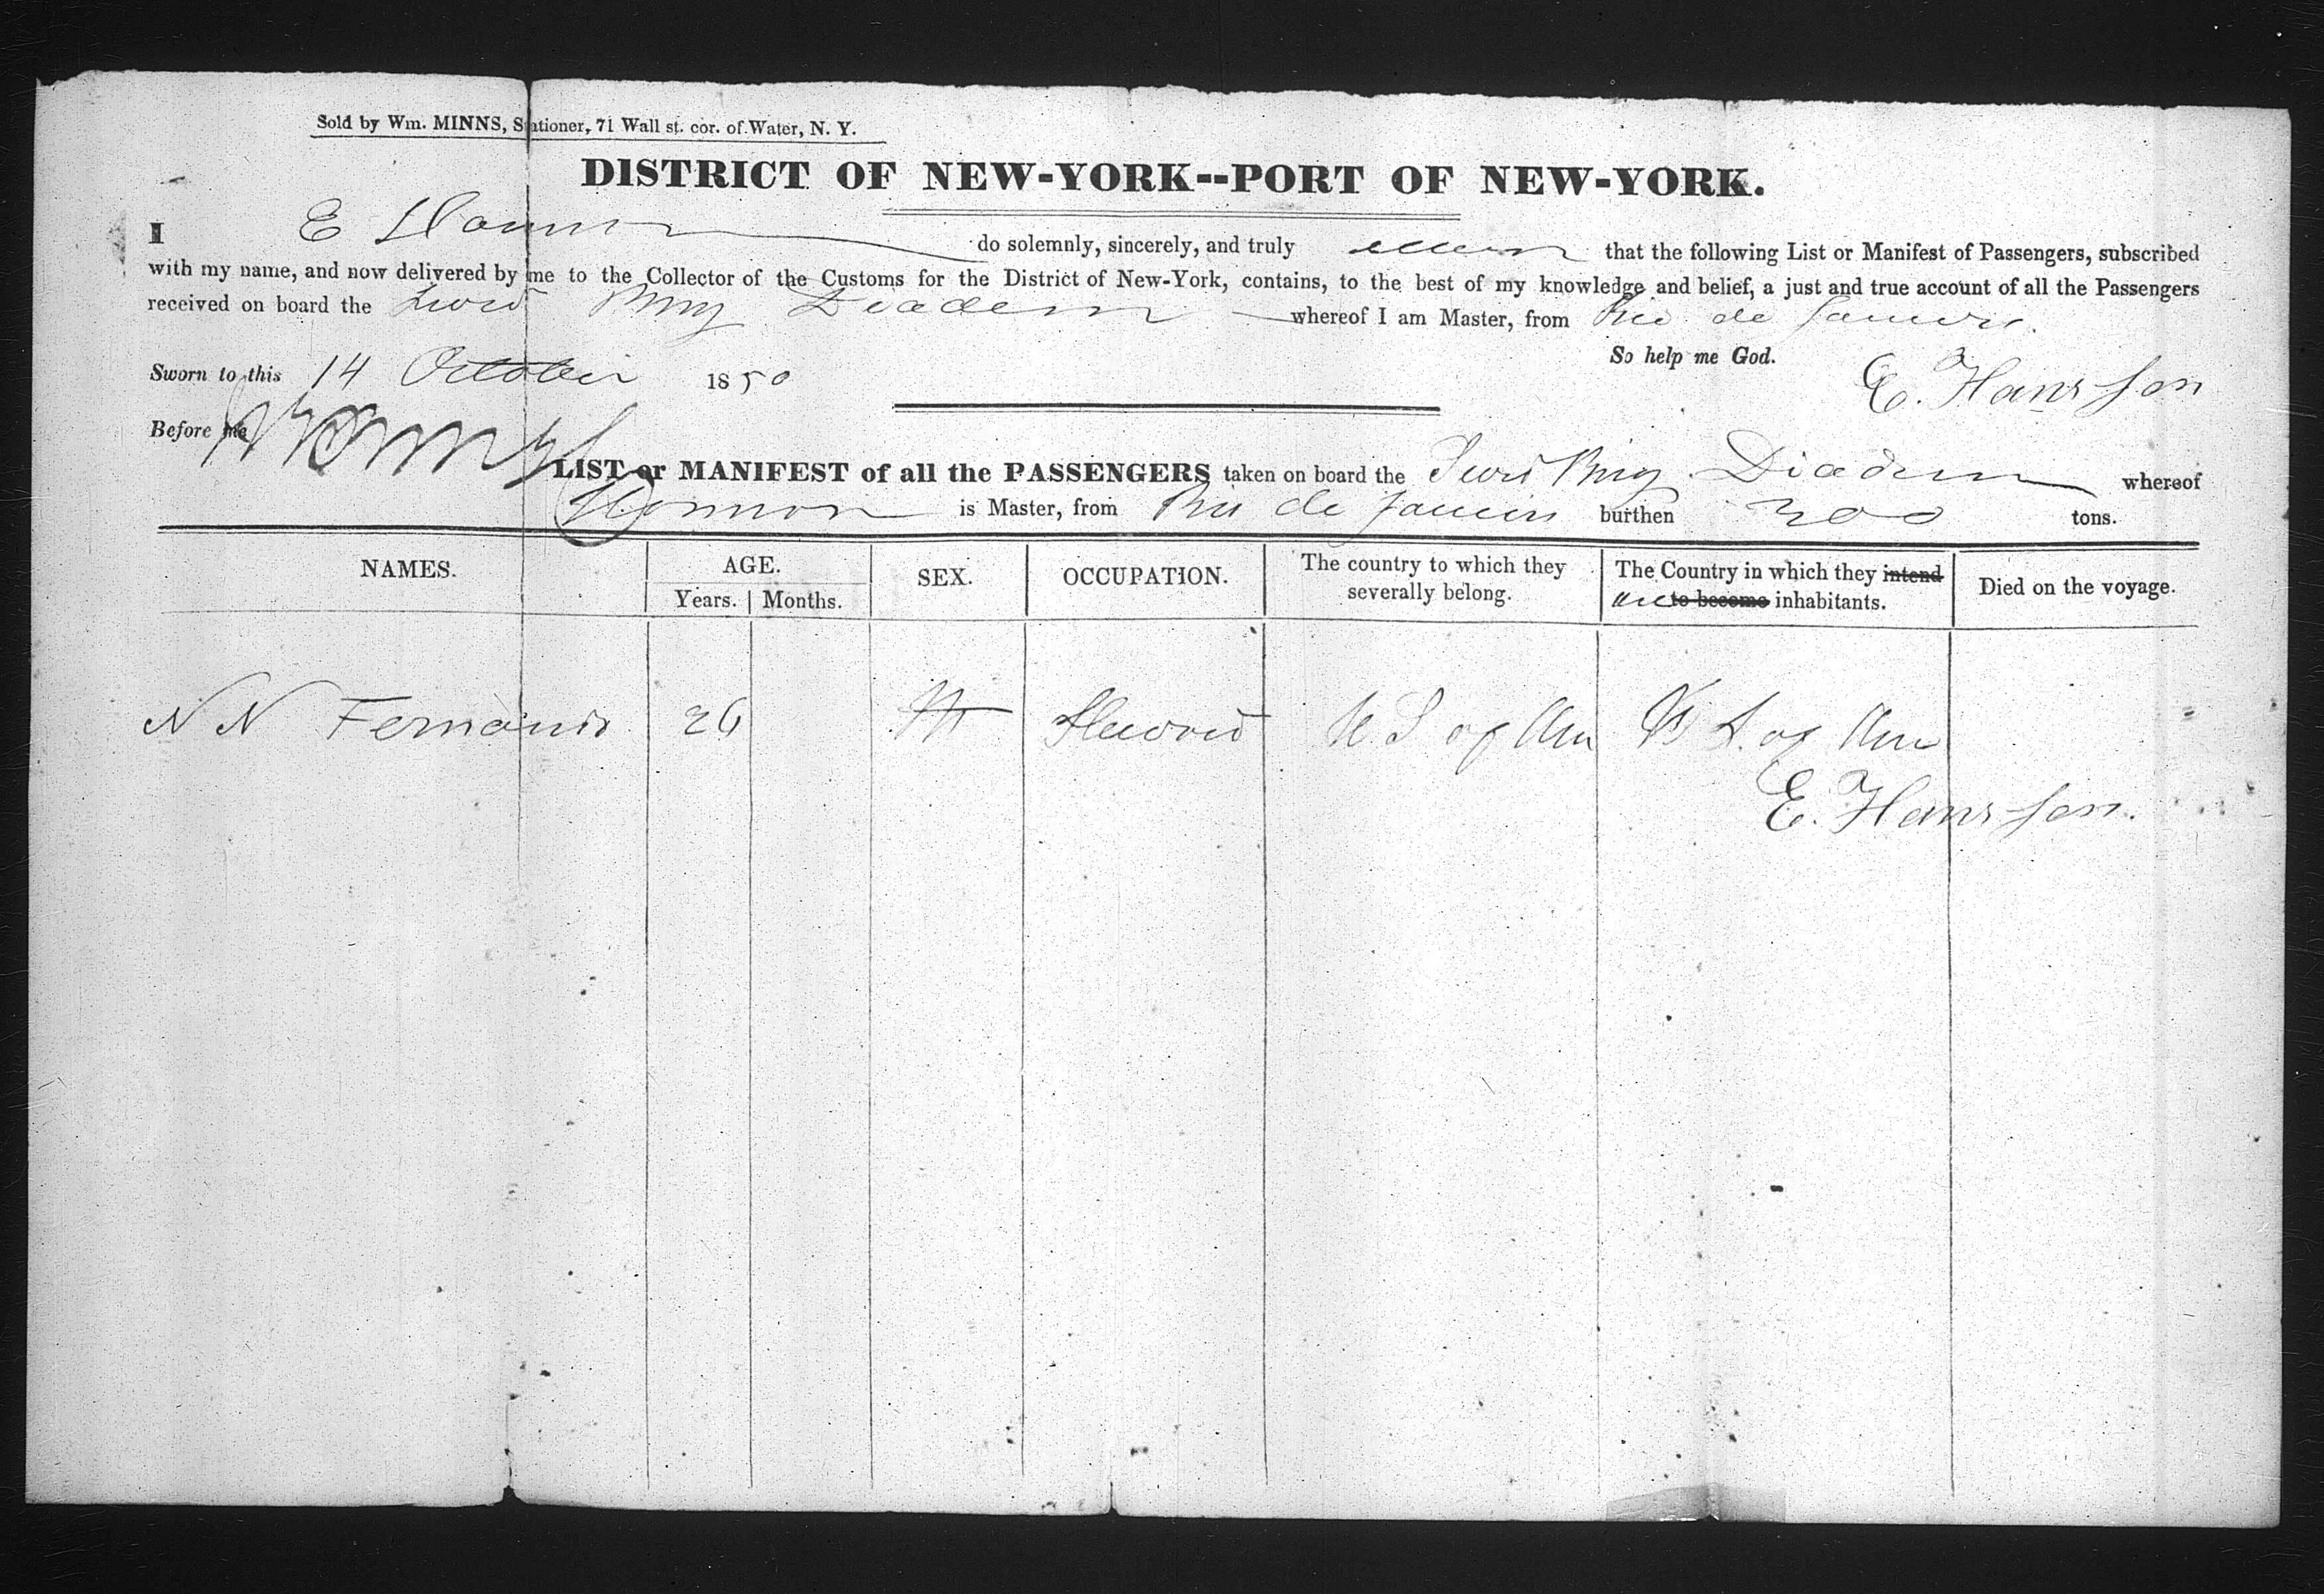 Sold by Wm. MINNS, Stationer, 71 Wall st. cor. of Water, N. Y.
DISTRICT OF NEW-YORK--PORT OF NEW-YORK.
I E do solemnly, sincerely, and truly that the following List or Manifest of Passengers, subscribed
with my name, and now delivered by me to the Collector of the Customs for the District of New-York, contains, to the best of my knowledge and belief, a just and true account of all the Passengers
received on board the Brig Diadem whereof I am Master, from Rio de Janeiro.
So help me God.
Sworn to this 14 October 1850
E. Hansson
Before me
LIST or MANIFEST of all the PASSENGERS taken on board the Brig Diadem whereof
is Master, from Rio de Janeiro burthen 300 tons.
NAMES. AGE. SEX. OCCUPATION. The country to which they severally belong. The Country in which they intend to become are inhabitants. Died on the voyage.
Years. Months.
N N 26 M U S of Am U S. of Am
E. Hansson.